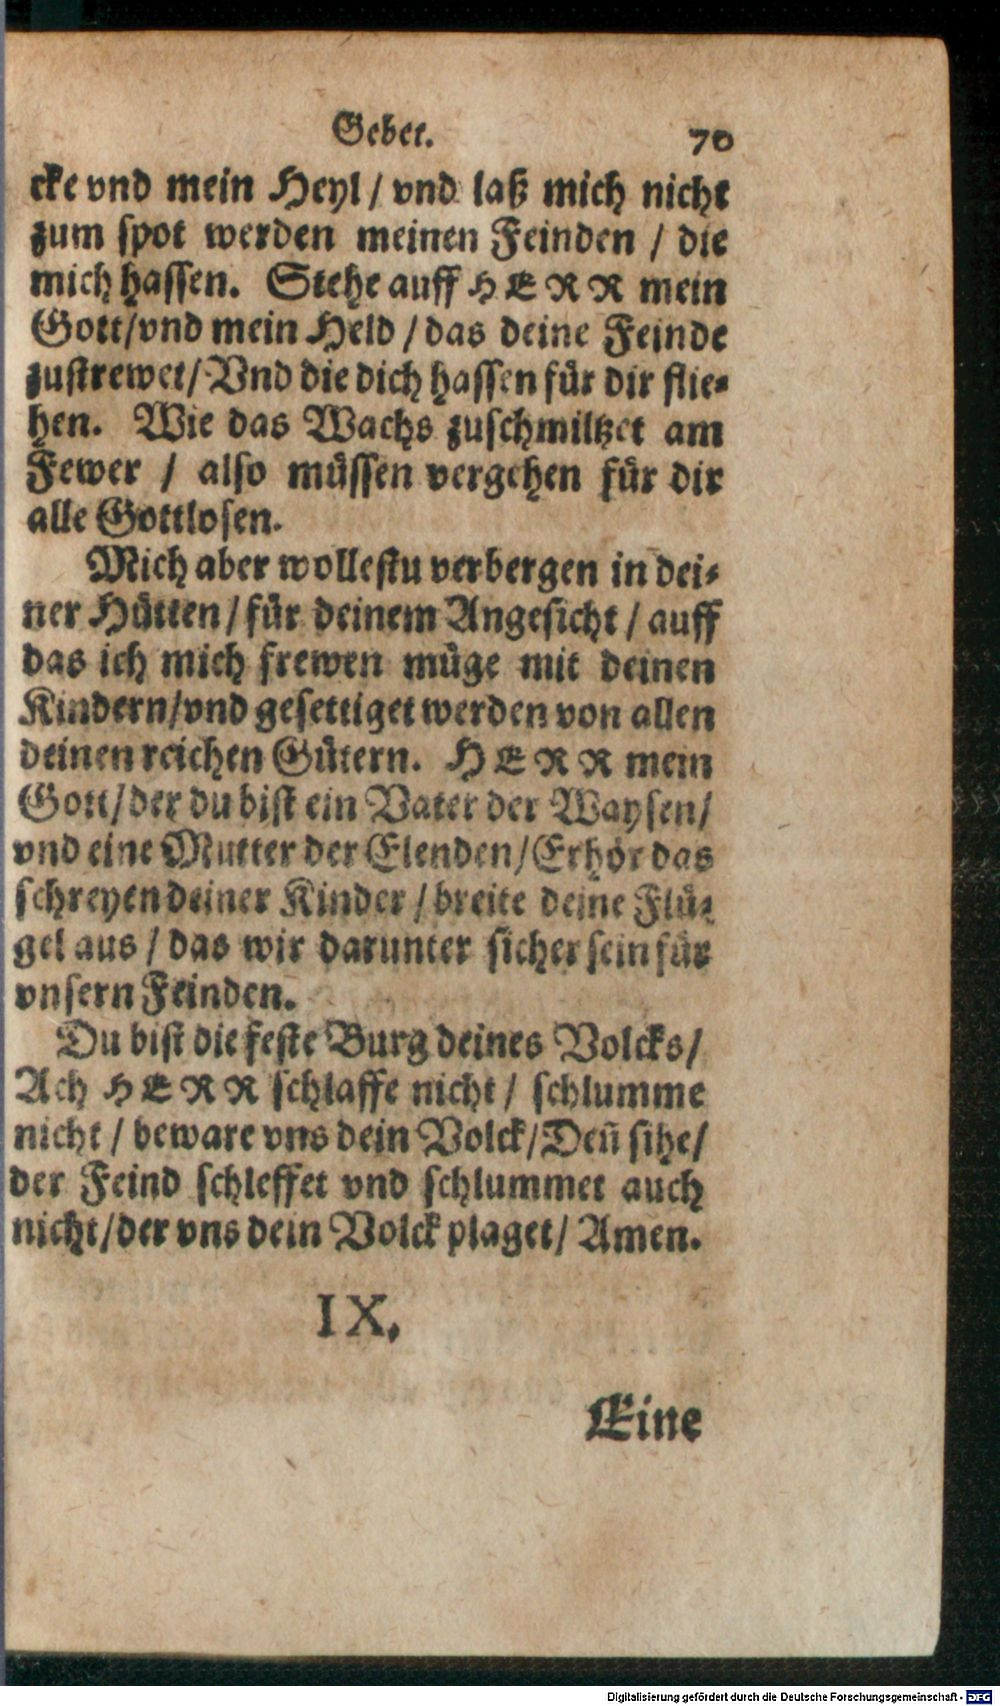 Gebet. 70
cke vnd mein Heyl / vnd laß mich nicht
zum spot werden meinen Feinden / die
mich hassen. Stehe auff HERR mein
Gott/vnd mein Held / das deine Feinde
zustrewet/ Vnd die dich hassen für dir flie-
hen. Wie das Wachs zuschmiltzet am
Fewer / also müssen vergehen für dir
alle Gottlosen.
Mich aber wollestu verbergen in dei-
ner Hütten / für deinem Angesicht / auff
das ich mich frewen müge mit deinen
Kindern/vnd gesettiget werden von allen
deinen reichen Gütern. HERR mein
Gott/der du bist ein Vater der Waysen/
vnd eine Mutter der Elenden/Erhör das
schreyen deiner Kinder / breite deine Flü-
gel aus / das wir darunter sicher sein für
vnsern Feinden.
Du bist die feste Burg deines Volcks/
Ach HERR schlaffe nicht / schlumme
nicht / beware vns dein Volck/Deñ sihe/
der Feind schleffet vnd schlummet auch
nicht/der vns dein Volck plaget/ Amen.
IX.
Eine
Digitalisierung gefördert durch die Deutsche Forschungsgemeinschaft - DFG